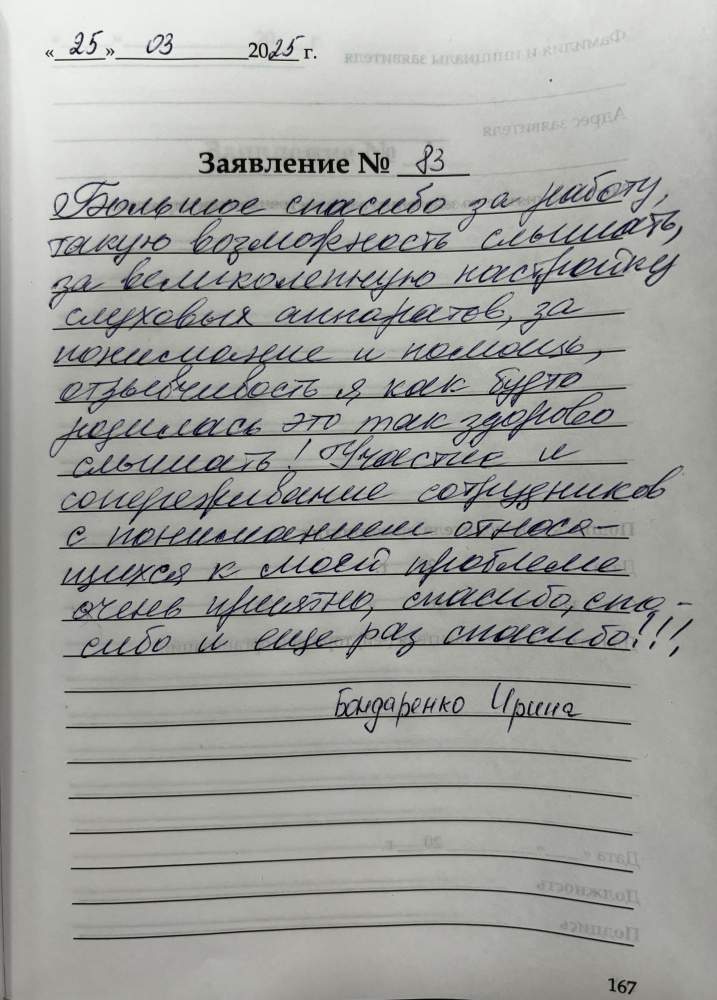 « 25 » 03 2025 г.
Заявление № 83
Большое спасибо за работу,
такую возможность слышать,
за великолепную настройку
слуховых аппаратов, за
понимание и помощь,
отзывчивость я как будто
родилась это так здорово
слышать! Участие и
сопереживание сотрудников
с пониманием относя-
щихся к моей проблеме
очень приятно, спасибо, спа-
сибо и еще раз спасибо!!!,
Бондаренко Ирина
167
Фамилия и инициалы заявителя
Адрес заявителя
20 г
Дата «
Должность
Подпись